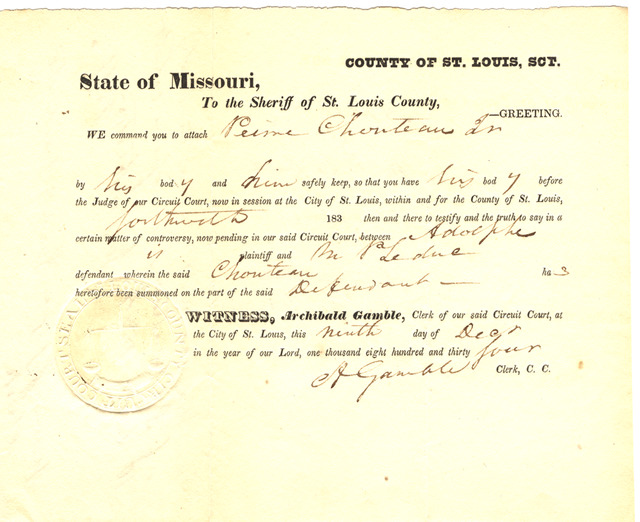 COUNTY OF ST. LOUIS, SCT.
State of Missouri,
To the Sheriff of St. Louis County,
—GREETING.
WE command you to attach Peirre Chouteau Jr
by his body and him safely keep, so that you have his body before
the Judge of our Circuit Court, now in session at the City of St. Louis, within and for the County of St. Louis,
forthwith 183 then and there to testify and the truth to say in a
certain matter of controversy, now pending in our said Circuit Court, between Adolphe
is plaintiff and M P Leduc
defendant wherein the said Chouteau ha s
heretofore been summoned on the part of the said Defendant —
WITNESS, Archibald Gamble, Clerk of our said Circuit Court, at
the City of St. Louis, this ninth day of Decr
in the year of our Lord, one thousand eight hundred and thirty four
A Gamble Clerk, C. C.